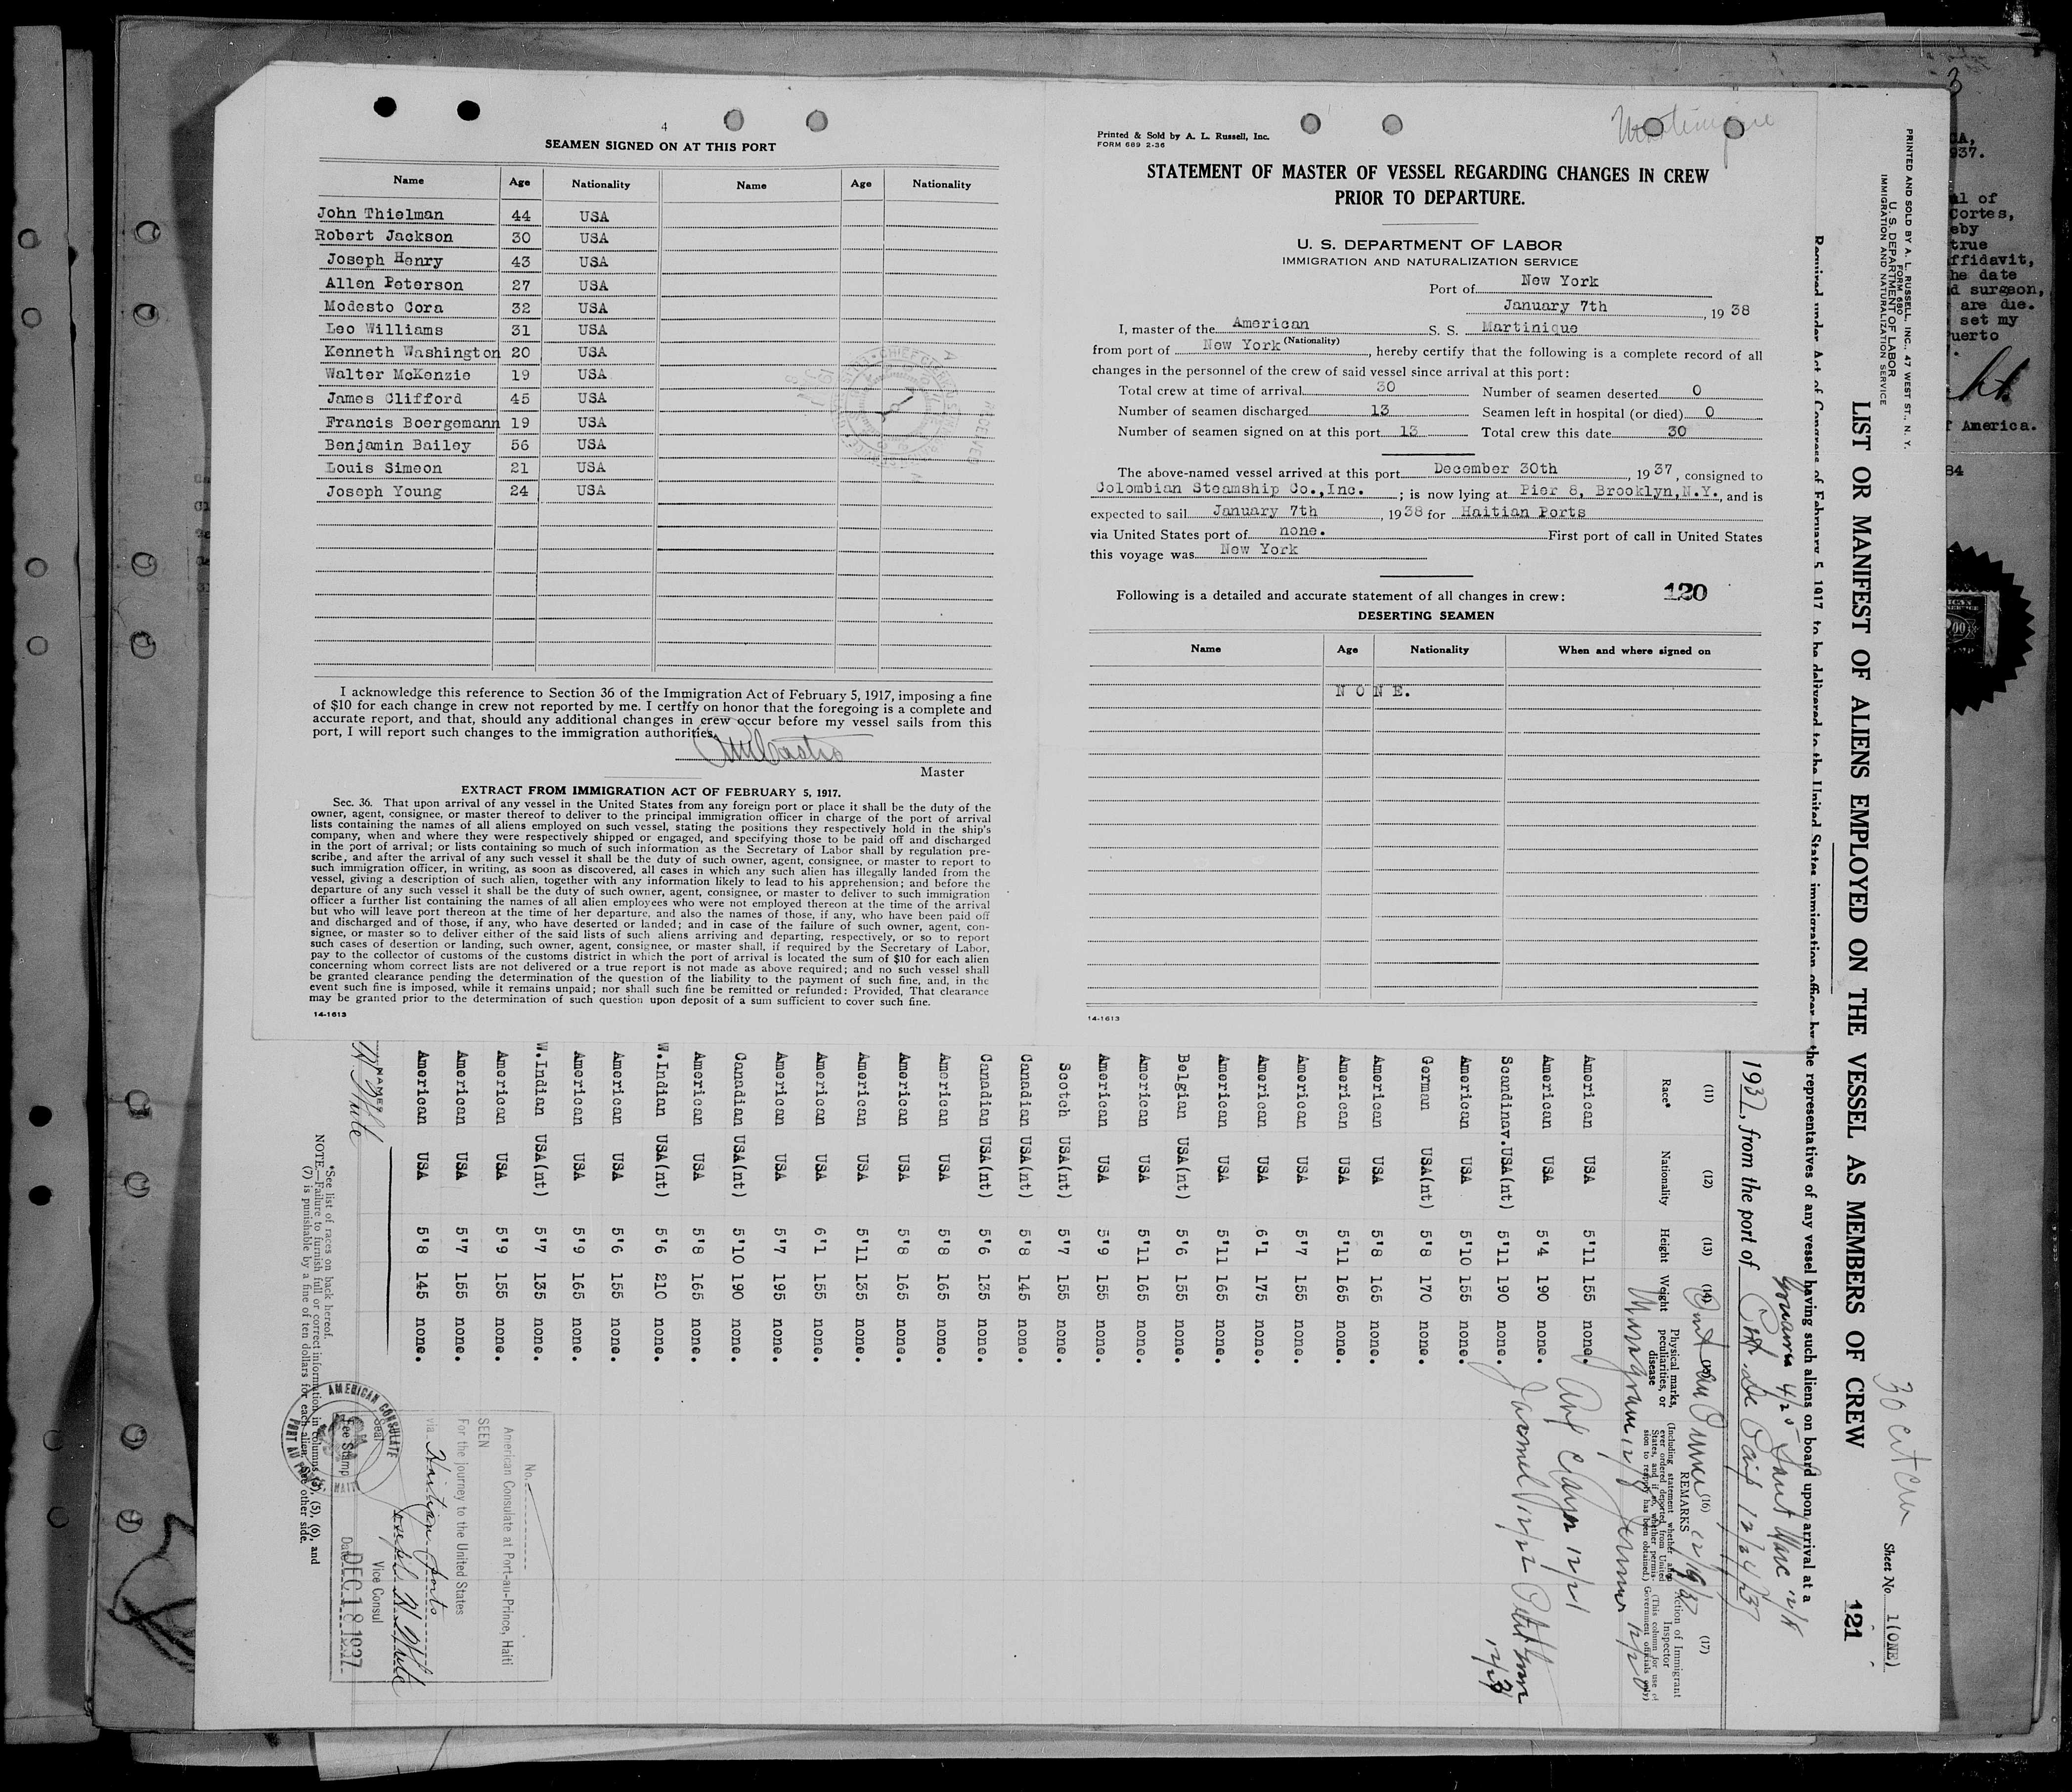 4
SEAMEN SIGNED ON AT THIS PORT
Name Age Nationality Name Age Nationality
John Thielman 44 USA
Robert Jackson 30 USA
Joseph Henry 43 USA
Allen Peterson 27 USA
Modesto Cora 32 USA
Leo Williams 31 USA
Kenneth Washington 20 USA
Walter McKenzie 19 USA
James Clifford 45 USA
Francis Boergemann 19 USA
Benjamin Bailey 56 USA
Louis Simeon 21 USA
Joseph Young 24 USA
I acknowledge this reference to Section 36 of the Immigration Act of February 5, 1917, imposing a fine
of $10 for each change in crew not reported by me. I certify on honor that the foregoing is a complete and
accurate report, and that, should any additional changes in crew occur before my vessel sails from this
port, I will report such changes to the immigration authorities.
Master
EXTRACT FROM IMMIGRATION ACT OF FEBRUARY 5, 1917.
Sec. 36. That upon arrival of any vessel in the United States from any foreign port or place it shall be the duty of the
owner, agent, consignee, or master thereof to deliver to the principal immigration officer in charge of the port of arrival
lists containing the names of all aliens employed on such vessel, stating the positions they respectively hold in the ship's
company, when and where they were respectively shipped or engaged, and specifying those to be paid off and discharged
in the port of arrival; or lists containing so much of such information as the Secretary of Labor shall by regulation pre-
scribe, and after the arrival of any such vessel it shall be the duty of such owner, agent, consignee, or master to report to
such immigration officer, in writing, as soon as discovered, all cases in which any such alien has illegally landed from the
vessel, giving a description of such alien, together with any information likely to lead to his apprehension; and before the
departure of any such vessel it shall be the duty of such owner, agent, consignee, or master to deliver to such immigration
officer a further list containing the names of all alien employees who were not employed thereon at the time of the arrival
but who will leave port thereon at the time of her departure, and also the names of those, if any, who have been paid off
and discharged and of those, if any, who have deserted or landed; and in case of the failure of such owner, agent, con-
signee, or master so to deliver either of the said lists of such aliens arriving and departing, respectively, or so to report
such cases of desertion or landing, such owner, agent, consignee, or master shall, if required by the Secretary of Labor,
pay to the collector of customs of the customs district in which the port of arrival is located the sum of $10 for each alien
concerning whom correct lists are not delivered or a true report is not made as above required; and no such vessel shall
be granted clearance pending the determination of the question of the liability to the payment of such fine, and, in the
event such fine is imposed, while it remains unpaid; nor shall such fine be remitted or refunded: Provided, That clearance
may be granted prior to the determination of such question upon deposit of a sum sufficient to cover such fine.
14-1613
Martinique
Printed & Sold by A. L. Russell, Inc.
FORM 689 2-36
STATEMENT OF MASTER OF VESSEL REGARDING CHANGES IN CREW
PRIOR TO DEPARTURE.
U. S. DEPARTMENT OF LABOR
IMMIGRATION AND NATURALIZATION SERVICE
Port of New York
January 7th, 1938
I, master of the American S. S. Martinique
(Nationality)
from port of New York, hereby certify that the following is a complete record of all
changes in the personnel of the crew of said vessel since arrival at this port:
Total crew at time of arrival 30 Number of seamen deserted 0
Number of seamen discharged 13 Seamen left in hospital (or died) 0
Number of seamen signed on at this port 13 Total crew this date 30
The above-named vessel arrived at this port December 30th, 1937, consigned to
Colombian Steamship Co.,Inc.; is now lying at Pier 8, Brooklyn,N.Y., and is
expected to sail January 7th, 1938 for Haitian Ports
via United States port of none. First port of call in United States
this voyage was New York
Following is a detailed and accurate statement of all changes in crew: 120
DESERTING SEAMEN
Name Age Nationality When and where signed on
N O N E.
14-1613
PRINTED AND SOLD BY A. L. RUSSELL, INC., 47 WEST ST., N. Y.
FORM 680
U. S. DEPARTMENT OF LABOR
IMMIGRATION AND NATURALIZATION SERVICE
Sheet No. 1(ONE)
LIST OR MANIFEST OF ALIENS EMPLOYED ON THE VESSEL AS MEMBERS OF CREW 121
Required under Act of Congress of February 5, 1917 to be delivered to the United States immigration officer by the representatives of any vessel having such aliens on board upon arrival at a
1937, from the port of
(11) (12) (13) (14) (16) (17)
Race* Nationality Height Weight Physical marks, peculiarities, or disease REMARKS
(Including statement whether alien ever ordered deported from United States, and if so, whether permission to reapply has been obtained.)
Action of Immigrant Inspector
(This column for use of Government officials only)
American USA 5'11 155 none.
American USA 5'4 190 none.
Scandinav. USA(nt) 5'11 190 none.
American USA 5'10 155 none.
German USA(nt) 5'8 170 none.
American USA 5'8 165 none.
American USA 5'11 165 none.
American USA 5'7 155 none.
American USA 6'1 175 none.
American USA 5'11 165 none.
Belgian USA(nt) 5'6 155 none.
American USA 5'11 165 none.
American USA 5'9 155 none.
Scotch USA(nt) 5'7 155 none.
Canadian USA(nt) 5'8 145 none.
Canadian USA(nt) 5'6 135 none.
American USA 5'8 165 none.
American USA 5'8 165 none.
American USA 5'11 135 none.
American USA 6'1 155 none.
American USA 5'7 195 none.
Canadian USA(nt) 5'10 190 none.
American USA 5'8 165 none.
W.Indian USA(nt) 5'6 210 none.
American USA 5'6 155 none.
American USA 5'9 165 none.
W.Indian USA(nt) 5'7 135 none.
American USA 5'9 155 none.
American USA 5'7 155 none.
American USA 5'8 145 none.
No.
American Consulate at Port-au-Prince, Haiti
SEEN
For the journey to the United States
via Haitian ports
Joseph H White
Vice Consul
Seal
Fee Stamp
Date DEC 18 1937
AMERICAN CONSULATE
*See list of races on back hereof.
NOTE.—Failure to furnish full or correct information in columns (3), (5), (6), and
(7) is punishable by a fine of ten dollars for each alien. See other side.